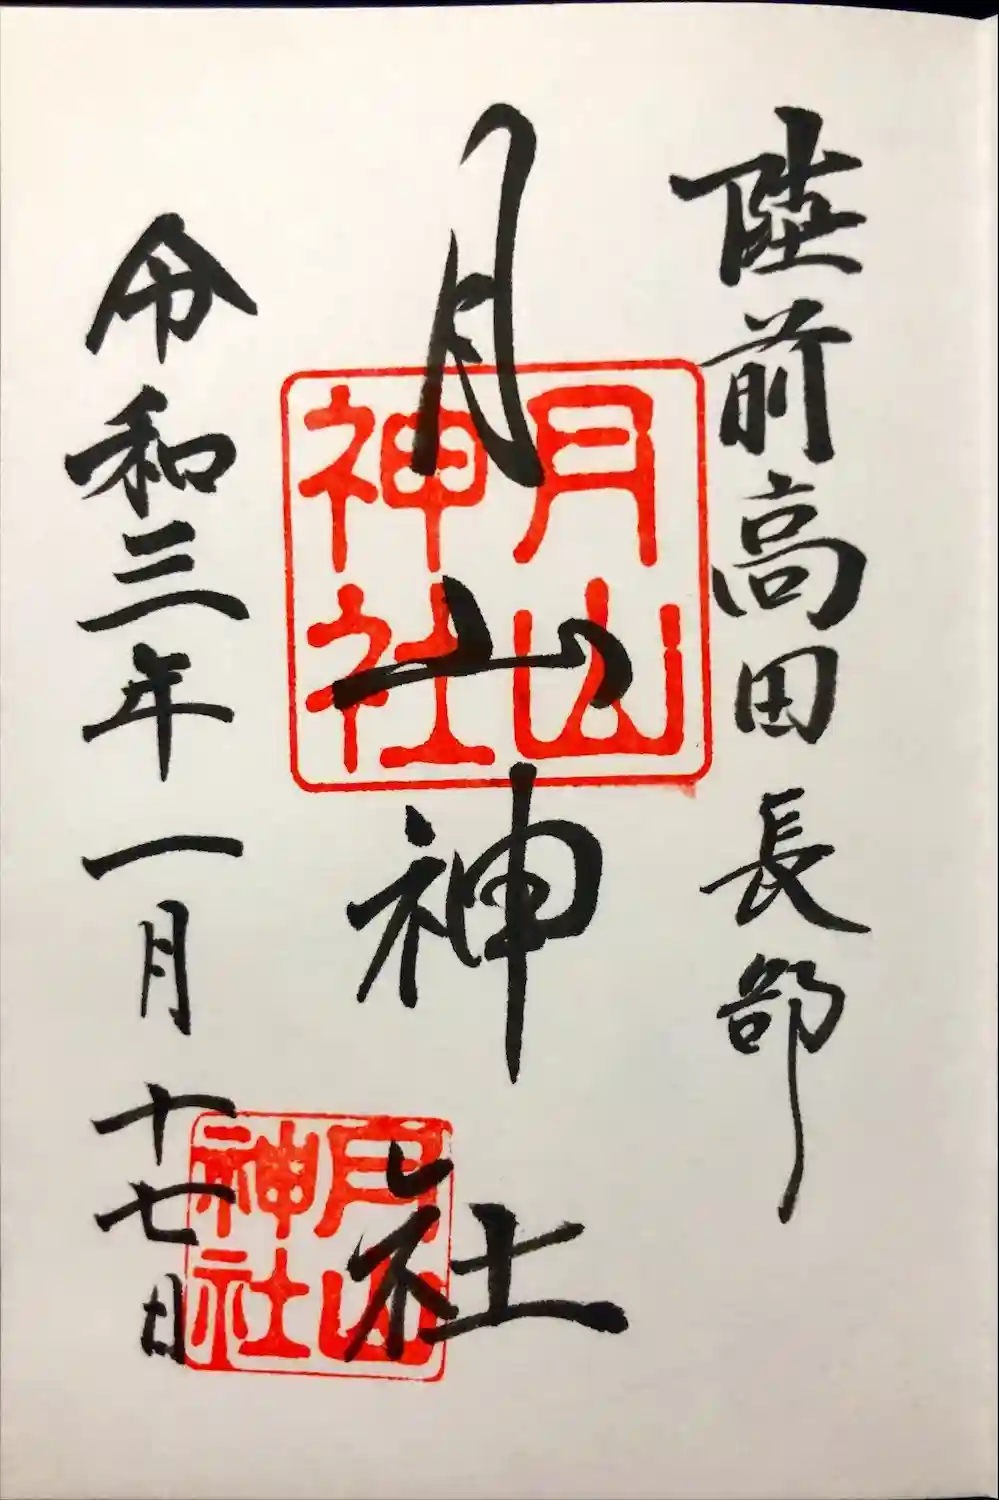 陸前高田長部
月山神社
令和三年一月十七日
月山
神社
月山
神社